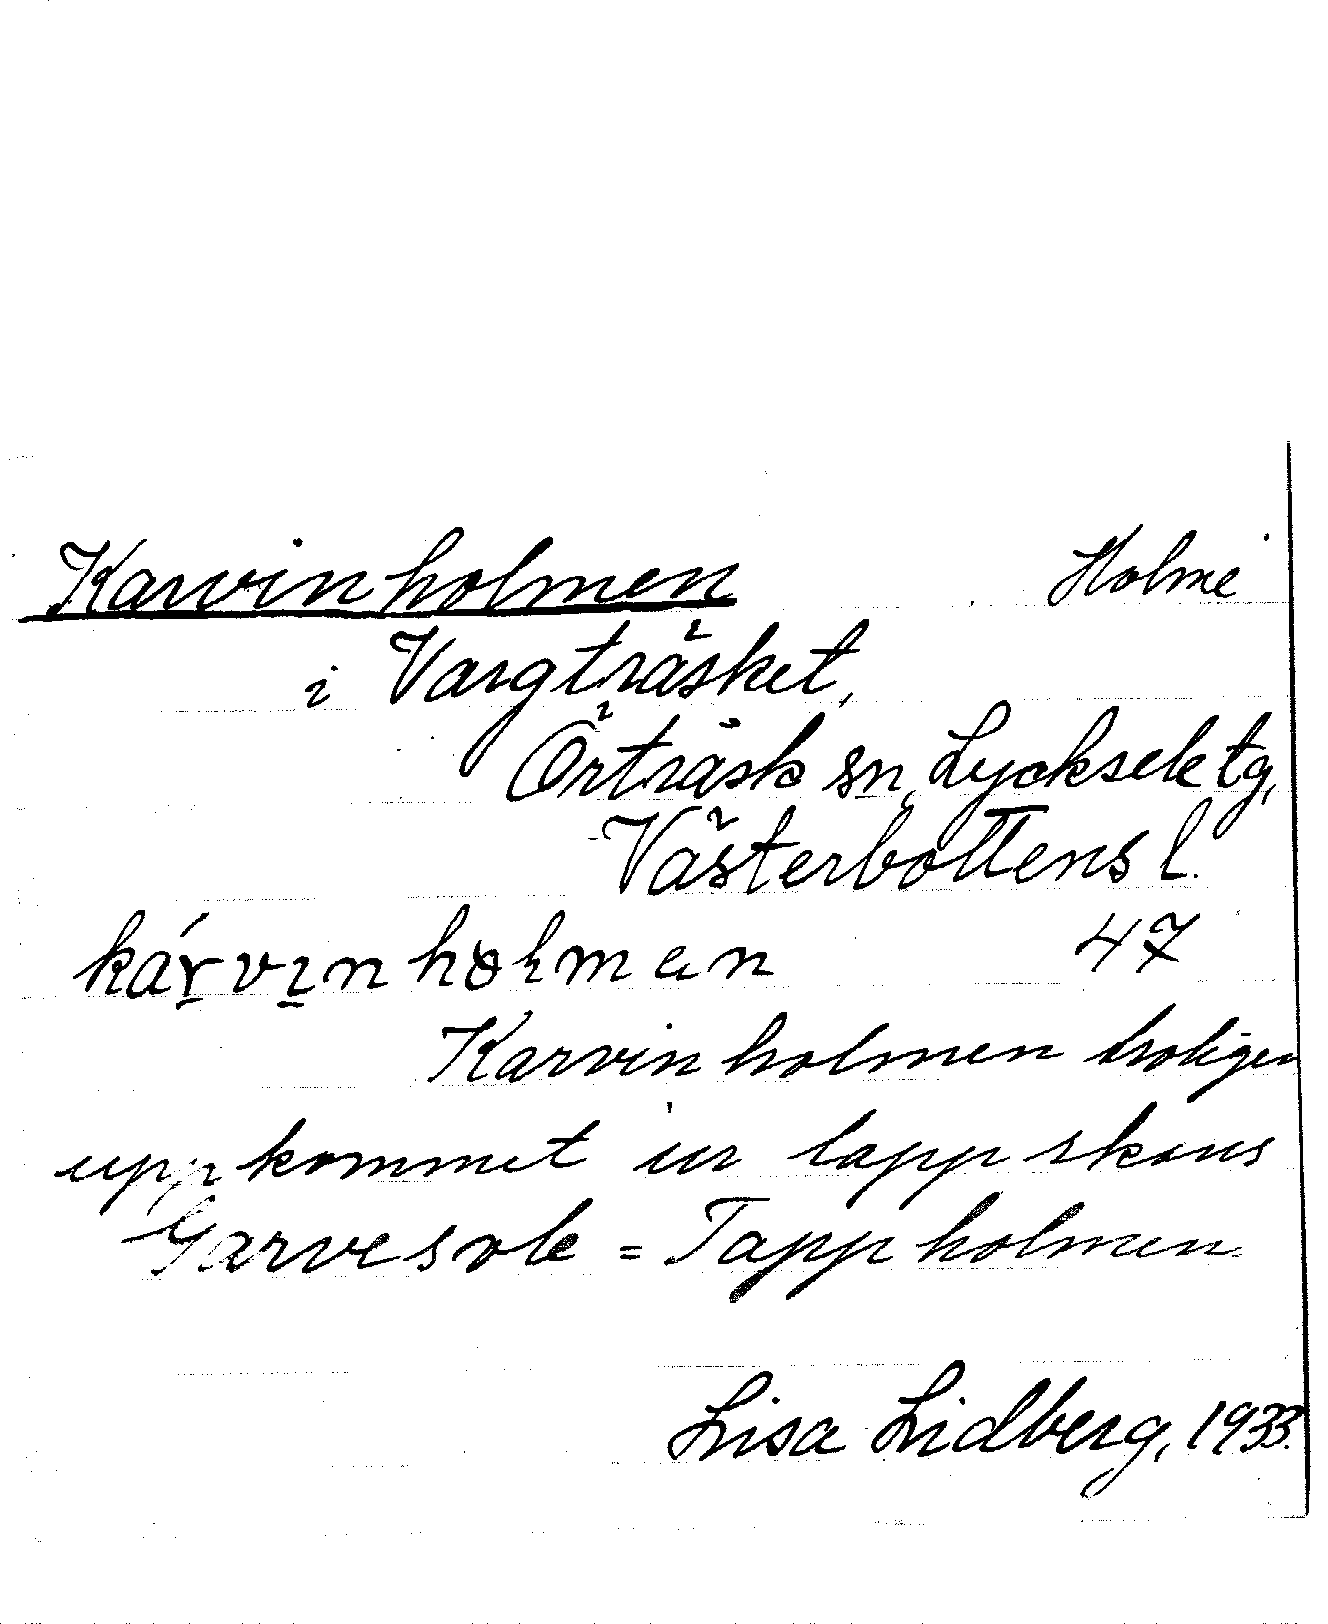 Karvinholmen Holme
i Vargträsket,
Örträsk sn, Lycksele tg,
Västerbottens l.
kárvınhołmən 47
Karvinholmen troligen
uppkommet ur lappskans
Garvesole = Tappholmen
Lisa Lidberg, 1933.